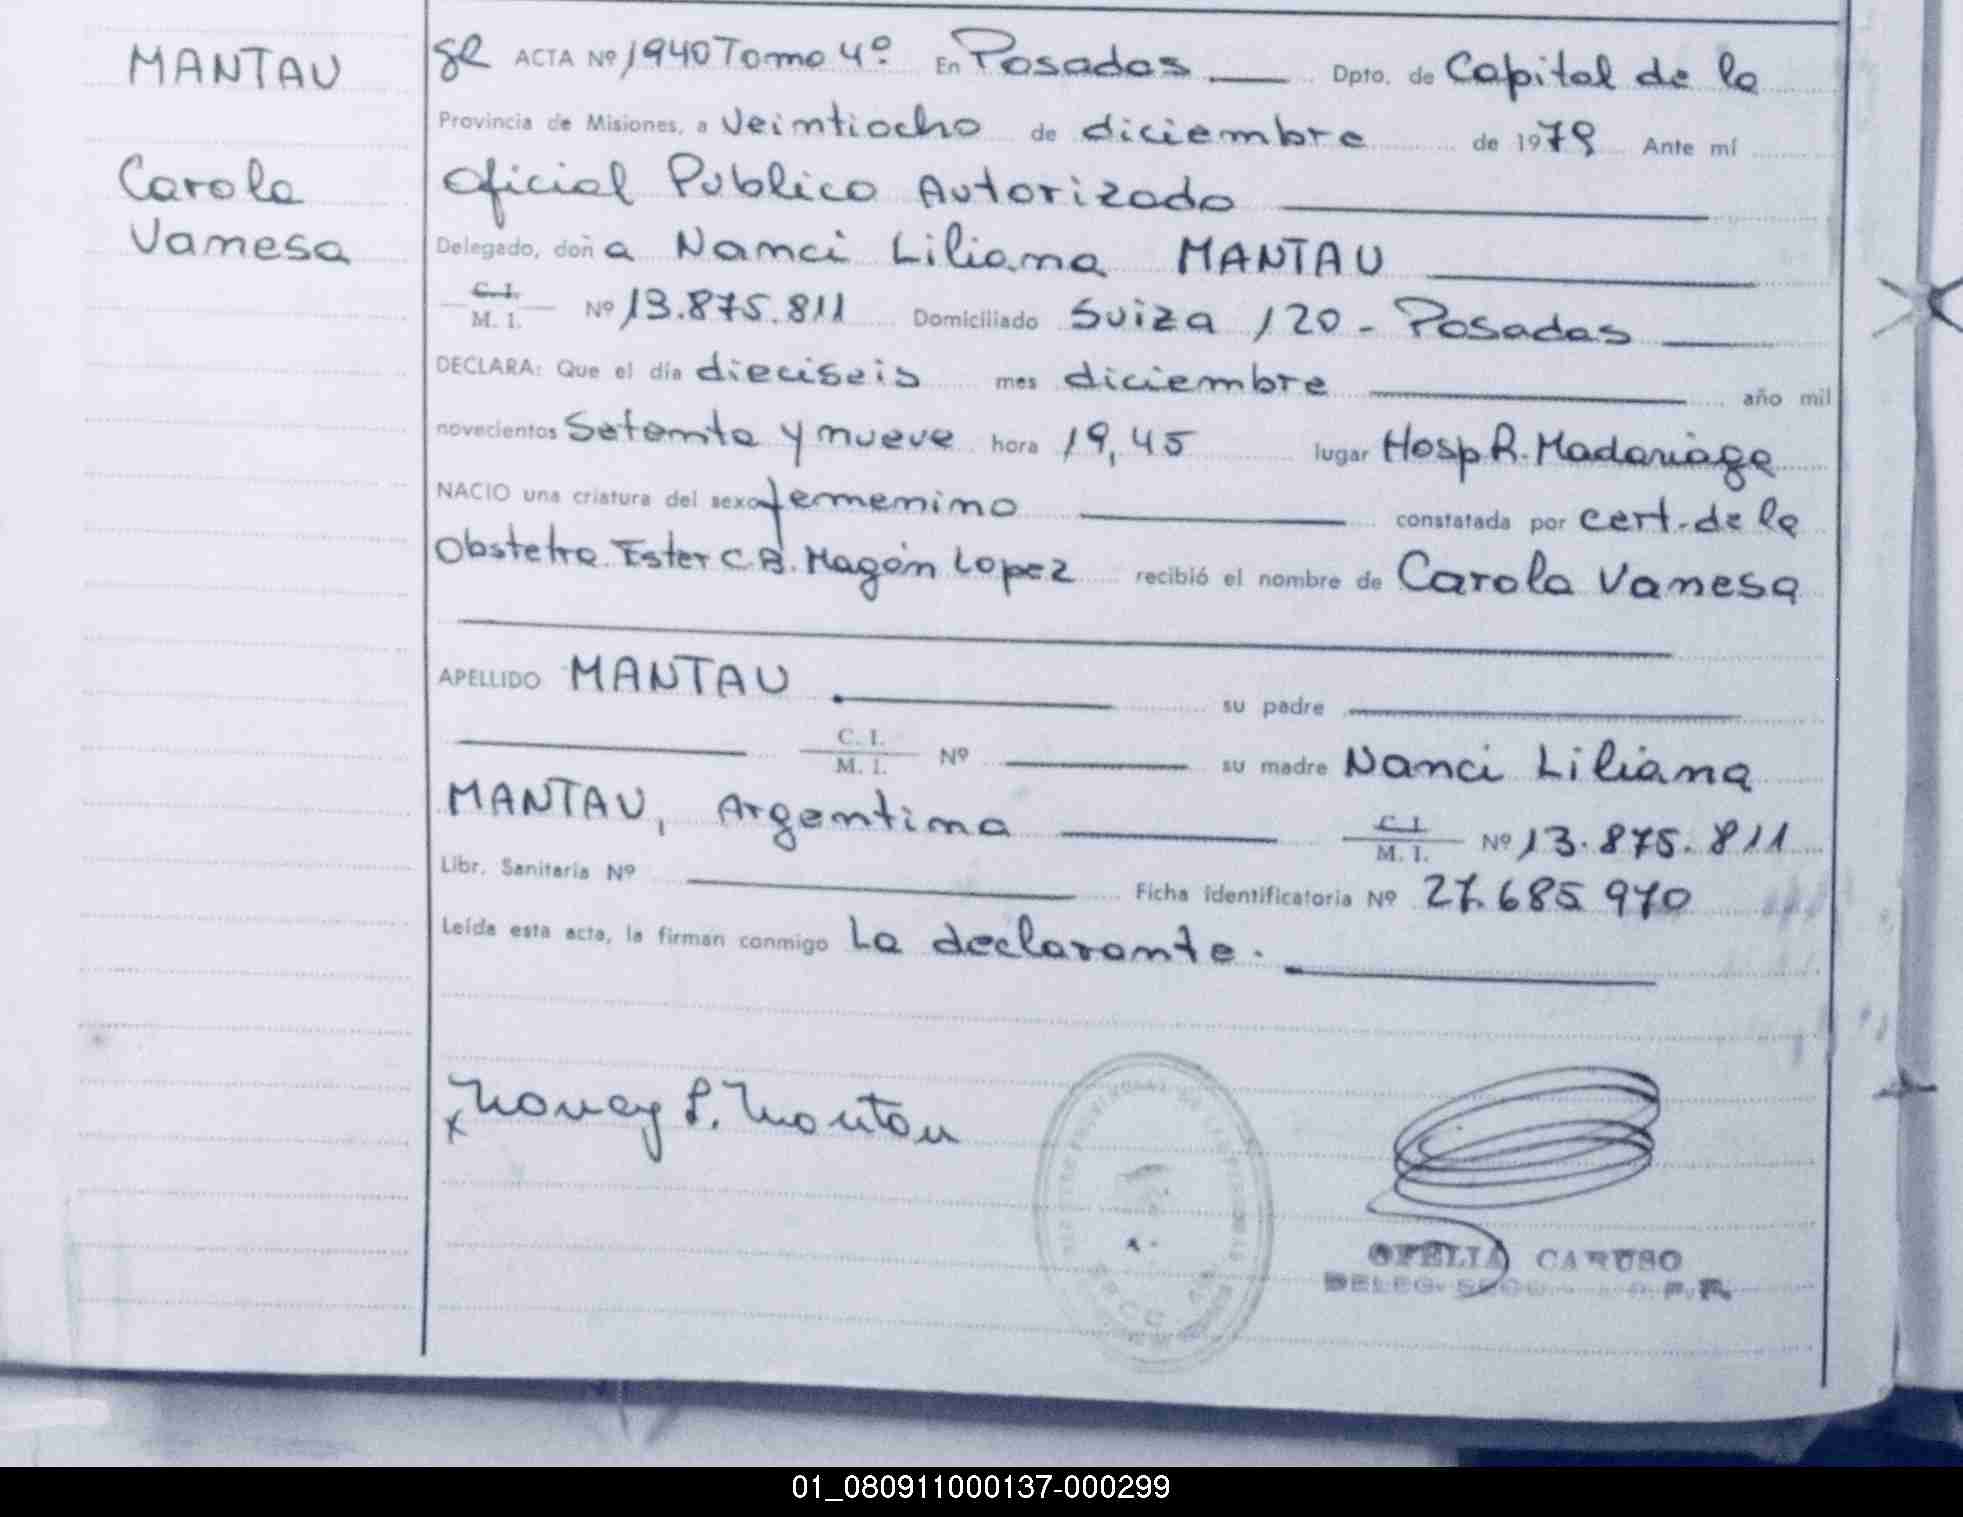 MANTAU
Carola
Vanesa
ACTA Nº 1940 Tomo 4º En Posadas Dpto. de Capital de la
Provincia de Misiones, a Veintiocho de diciembre de 1979 Ante mí
Oficial Publico Autorizado
Delegado, doña Nanci Liliana MANTAU
C. I.
M. I. Nº 13.875.811 Domiciliado Suiza 120 - Posadas
DECLARA: Que el día dieciseis mes diciembre año mil
novecientos Setenta y nueve hora 19,45 lugar Hosp R. Madariaga
NACIO una criatura del sexo femenino constatada por cert. de la
Obstetra Ester C.B. Magán Lopez recibió el nombre de Carola Vanesa
APELLIDO MANTAU su padre
C. I.
M. I. Nº su madre Nanci Liliana
MANTAU, Argentina C. I.
M. I. Nº 13.875.811
Libr. Sanitaria Nº Ficha identificatoria Nº 27.685.970
Leída esta acta, la firman conmigo La declarante.
x Nancy L. Mantau
OFELIA CARUSO
DELEG.
01_080911000137-000299